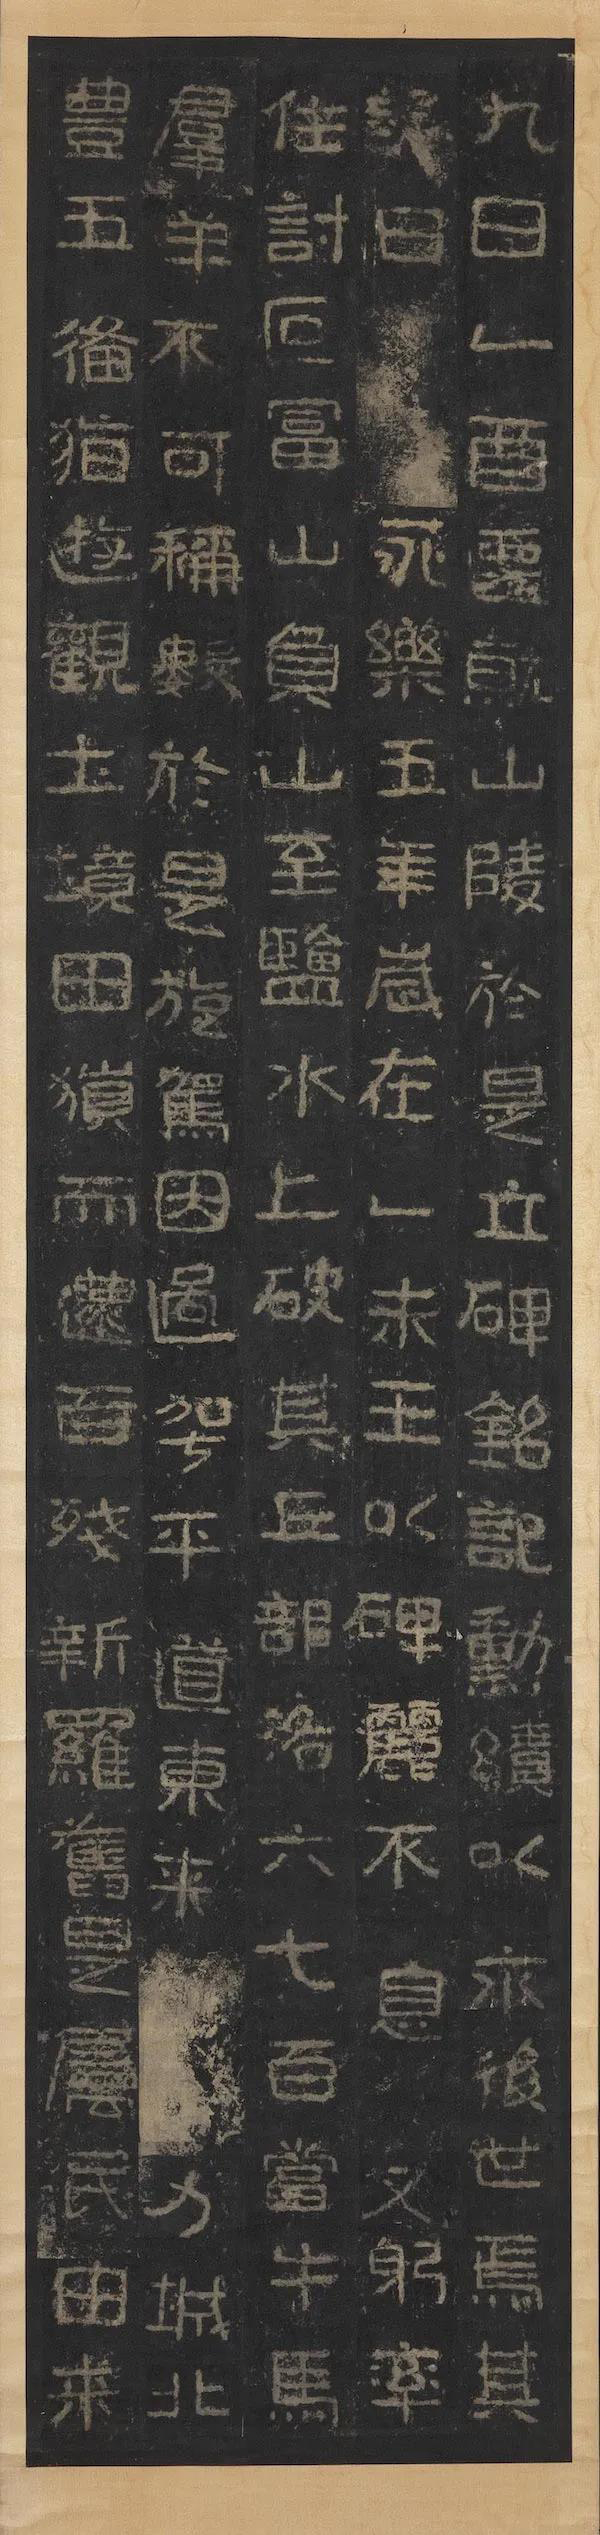 九日乙酉遷就山陵於是立碑銘記勳績以示後世焉其
曰永樂五年歲在乙未王以碑麗不息又躬率
住討叵富山負山至鹽水上破其丘部洛六七百當牛馬
羣羊不可稱數於是旋駕因過平道東来力城北
豊五備猶遊觀土境田獵而還百残新羅舊是屬民由来